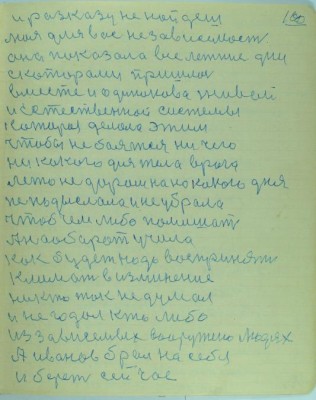 180
и разказу не найдеш
моя для вас независемост
она показала в летние дни
скоторами пришлос
вместе и одинокова живой
и естественной системы
которая делала этим
чтобы не баятся ни чего
ни какого для тела врага
лето не дуром на какова дня
не подыслала и не убрала
чтоб чем либо помишат
А наоборот учила
как будет надо воспринят
климат в изминение
никто так не думал
и не гадол кто либо
из зависемых вооружоно людях
А иванов брал на себя
и берет сей час